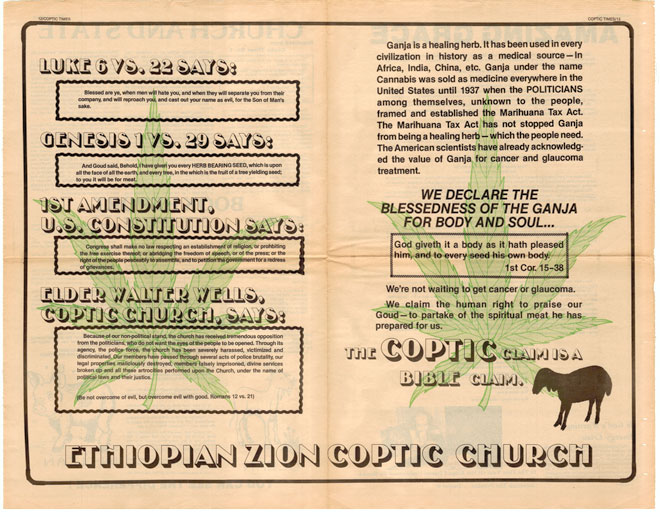 12/COPTIC TIMES
LUKE 6 VS. 22 SAYS:
Blessed are ye, when men will hate you, and when they will separate you from their
company, and will reproach you, and cast out your name as evil, for the Son of Man's
sake.
GENESIS 1 VS. 29 SAYS:
And Goud said, Behold, I have given you every HERB BEARING SEED, which is upon
all the face of all the earth, and every tree, in the which is the fruit of a tree yielding seed;
to you it will be for meat.
1ST AMENDMENT,
U.S. CONSTITUTION SAYS:
Congress shall make no law respecting an establishment of religion, or prohibiting
the free exercise thereof; or abridging the freedom of speech, or of the press; or the
right of the people peaceably to assemble, and to petition the government for a redress
of grievances.
ELDER WALTER WELLS,
COPTIC CHURCH, SAYS:
Because of our non-political stand, the church has received tremendous opposition
from the politicians, who do not want the eyes of the people to be opened. Through its
agency, the police force, the church has been severely harassed, victimized and
discriminated. Our members have passed through several acts of police brutality, our
legal properties maliciously destroyed, members falsely imprisoned, divine services
broken up and all these artrocities performed upon the Church, under the name of
political laws and their justice.
(Be not overcome of evil, but overcome evil with good. Romans 12 vs. 21)
COPTIC TIMES/13
Ganja is a healing herb. It has been used in every
civilization in history as a medical source—In
Africa, India, China, etc. Ganja under the name
Cannabis was sold as medicine everywhere in the
United States until 1937 when the POLITICIANS
among themselves, unknown to the people,
framed and established the Marihuana Tax Act.
The Marihuana Tax Act has not stopped Ganja
from being a healing herb—which the people need.
The American scientists have already acknowledg-
ed the value of Ganja for cancer and glaucoma
treatment.
WE DECLARE THE
BLESSEDNESS OF THE GANJA
FOR BODY AND SOUL...
God giveth it a body as it hath pleased
him, and to every seed his own body.
1st Cor. 15–38
We're not waiting to get cancer or glaucoma.
We claim the human right to praise our
Goud—to partake of the spiritual meat he has
prepared for us.
THE COPTIC CLAIM IS A
BIBLE CLAIM.
ETHIOPIAN ZION COPTIC CHURCH